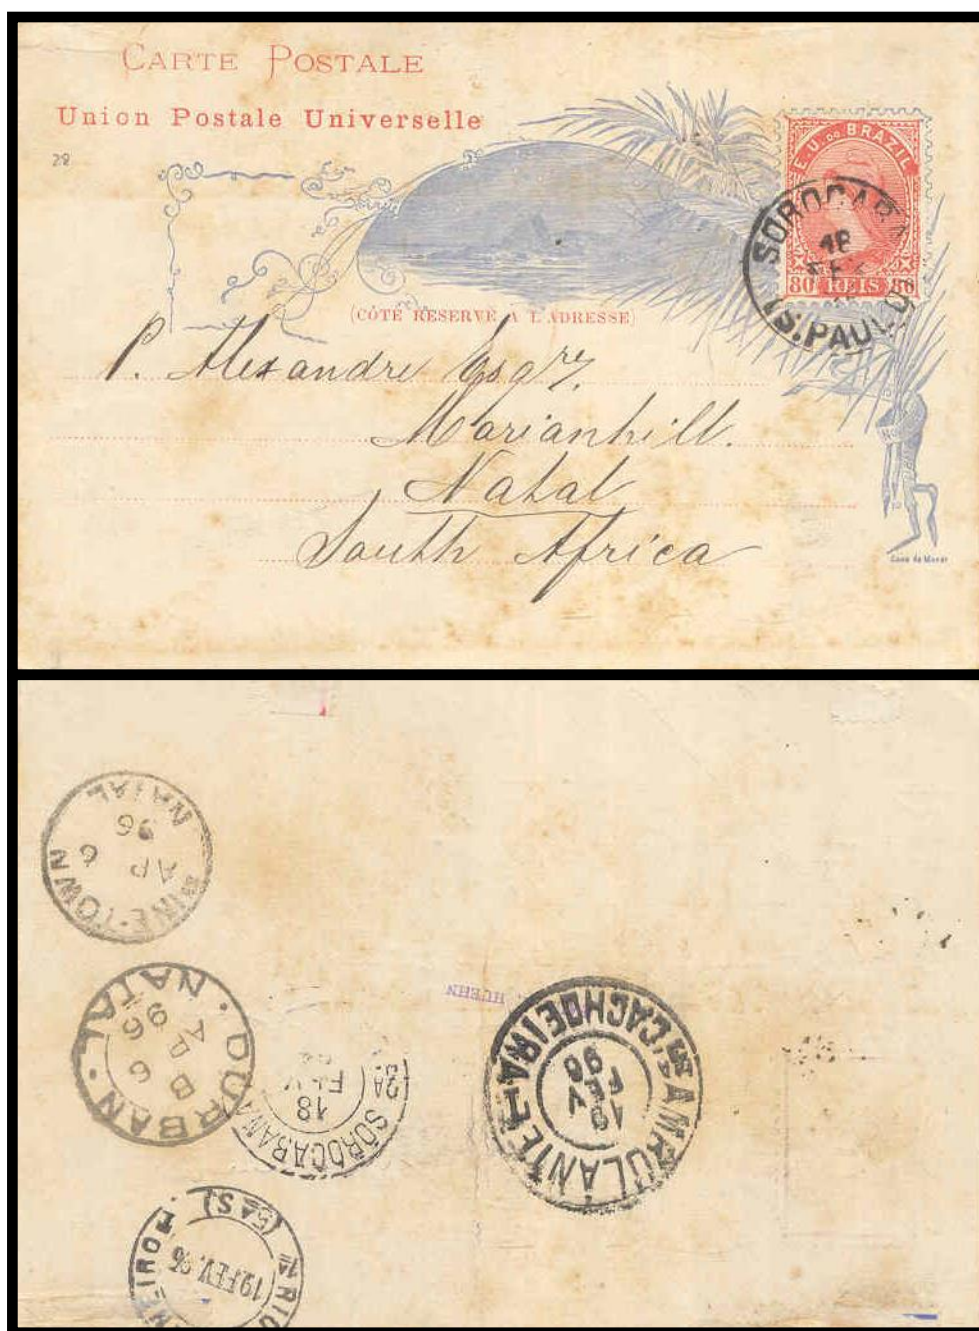 CARTE POSTALE
Union Postale Universelle
28
E. U. DO BRAZIL
80 REIS 80
SOROCABA
18
FEV
(S. PAULO)
(CÔTÉ RÉSERVÉ A L'ADRESSE)
P. Alexandre Esqre.
Marianhill.
Natal
South Africa
Casa da Moeda
PINE-TOWN
AP 6
96
NATAL
DURBAN · NATAL ·
B
AP 6
96
SOROCABANA
18
FEV
HUEHN
AMBULANTE
CACHOEIRA
19
FEV
96
19 FEV. 96
RIO
(5AS)